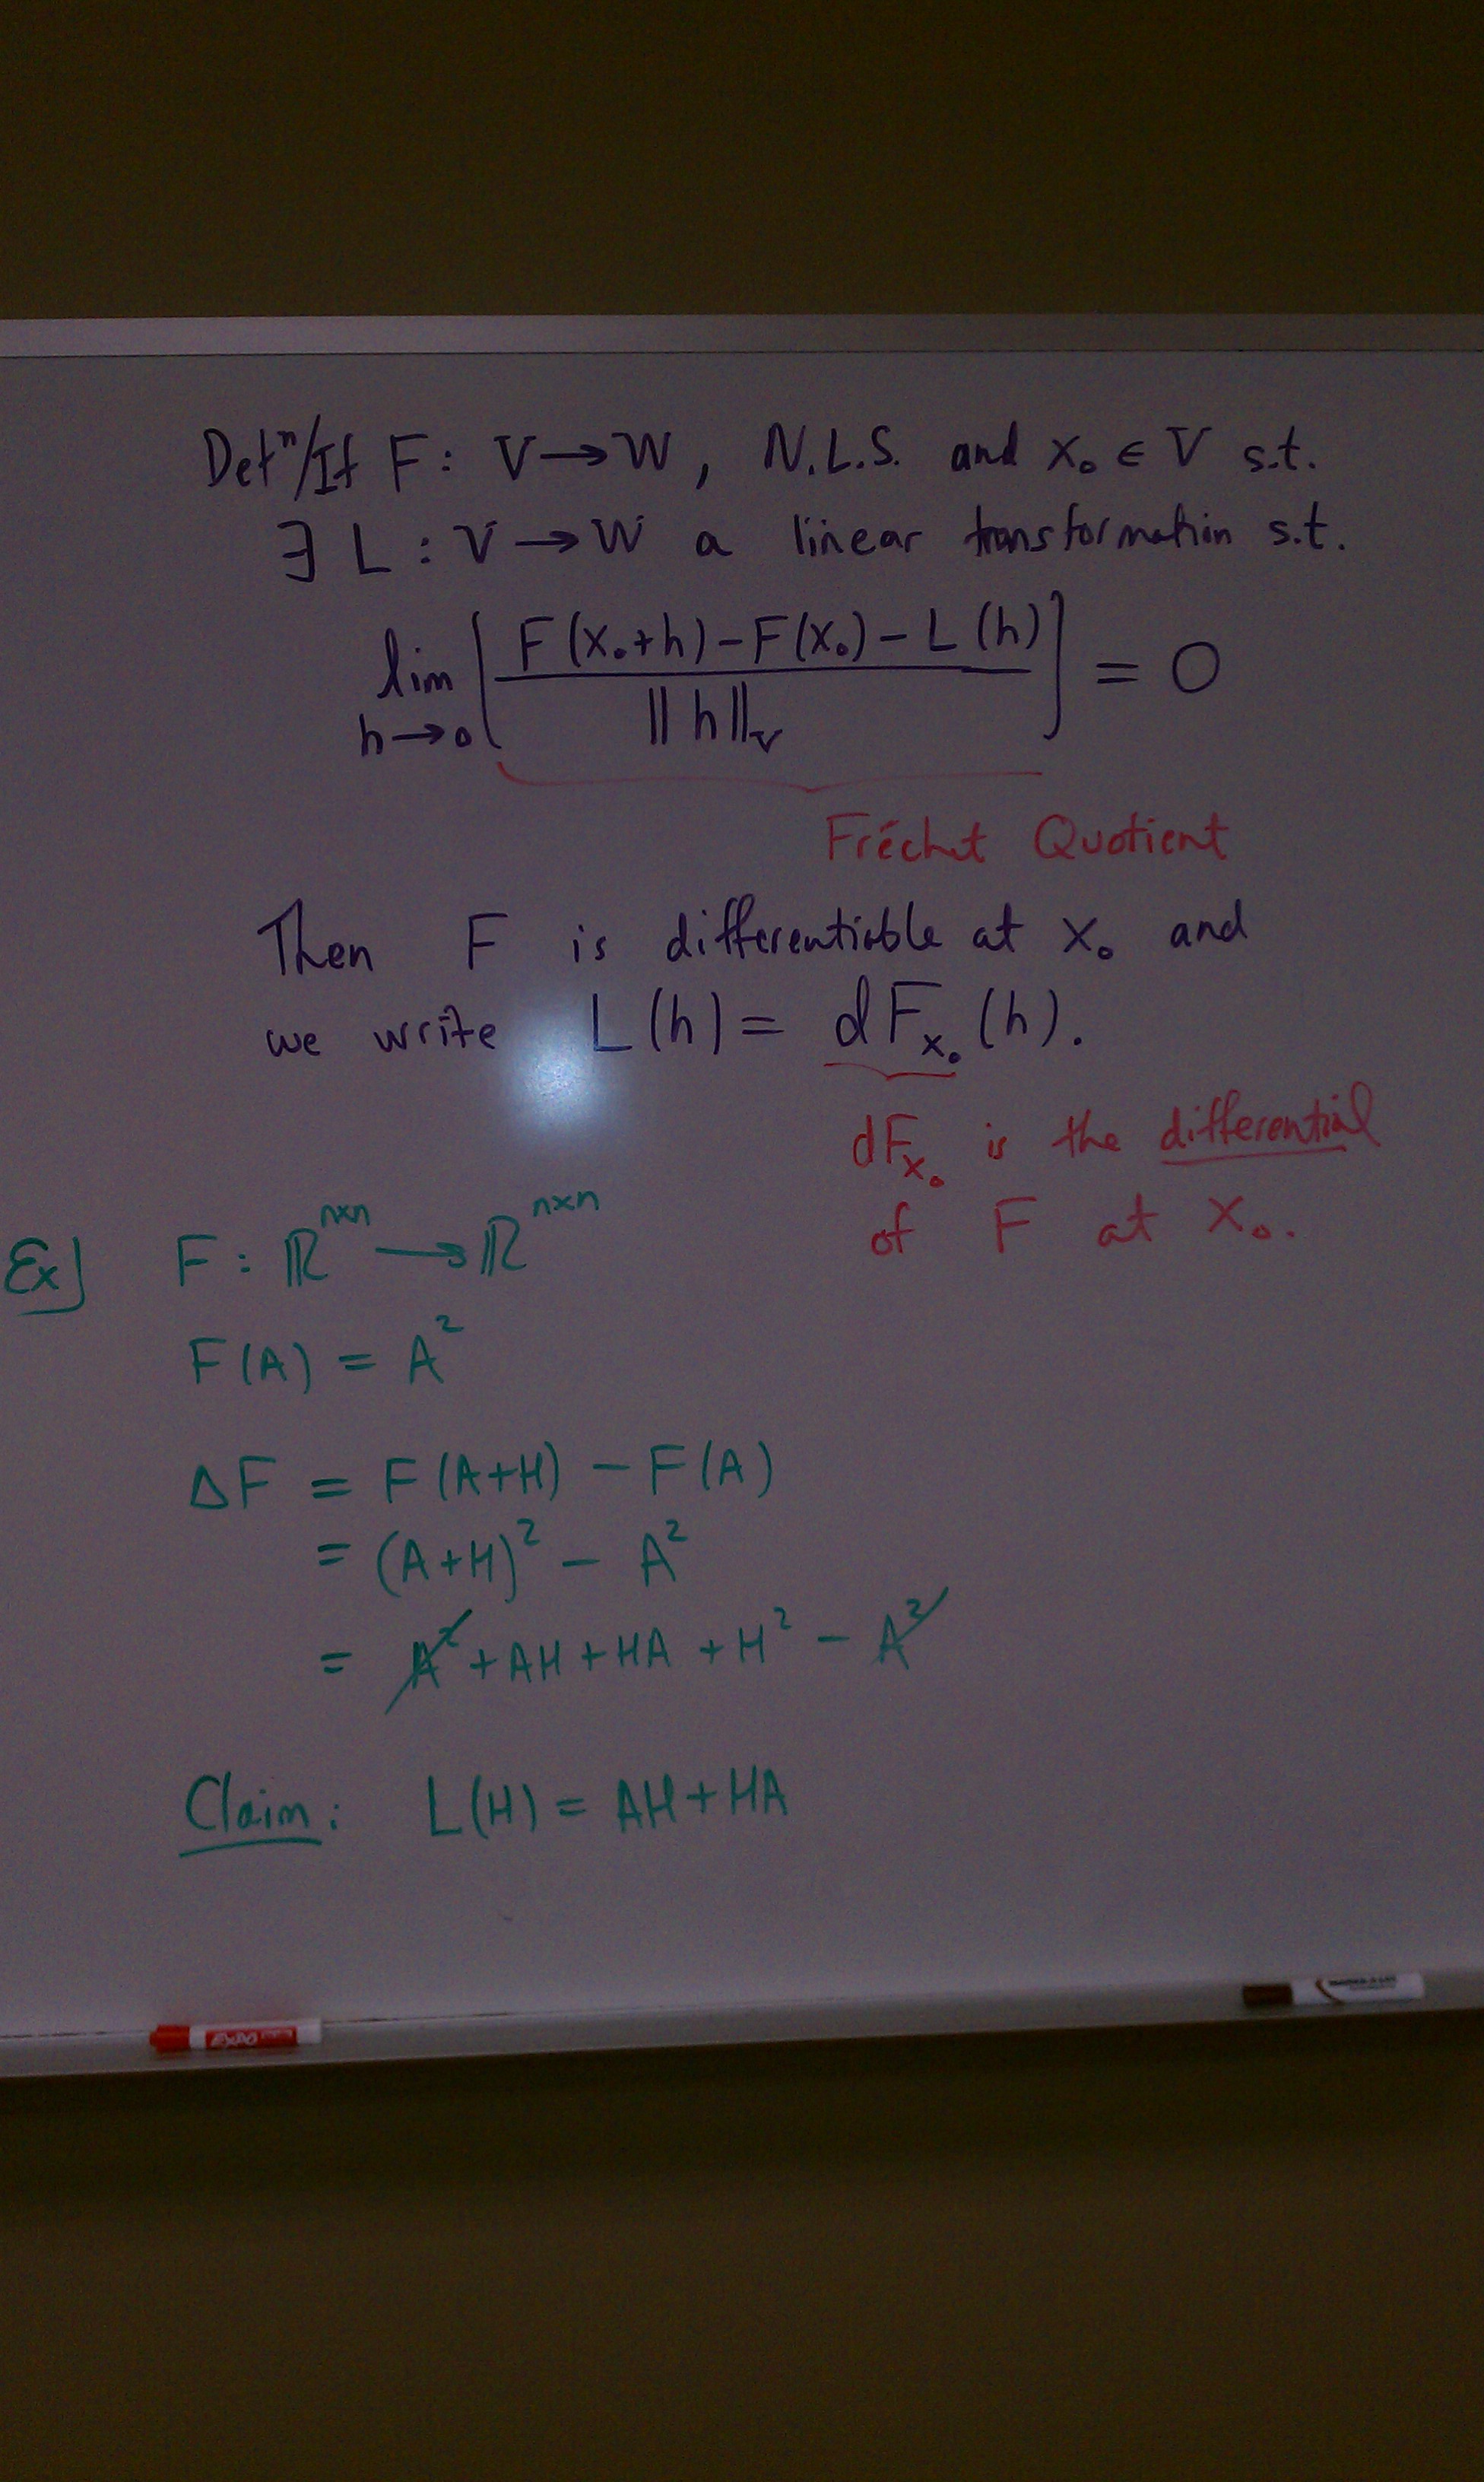 Defⁿ/If F: V→W, N.L.S. and x₀ ∈ V s.t.
∃ L : V→W a linear transformation s.t.
lim h→0 [ (F(x₀+h) - F(x₀) - L(h)) / ||h||_V ] = 0
Fréchet Quotient
Then F is differentiable at x₀ and
we write L(h) = dF_x₀(h).
dF_x₀ is the differential
of F at x₀.
Ex] F : ℝⁿˣⁿ → ℝⁿˣⁿ
F(A) = A²
ΔF = F(A+H) - F(A)
= (A+H)² - A²
= A² + AH + HA + H² - A²
Claim: L(H) = AH + HA
EXPO